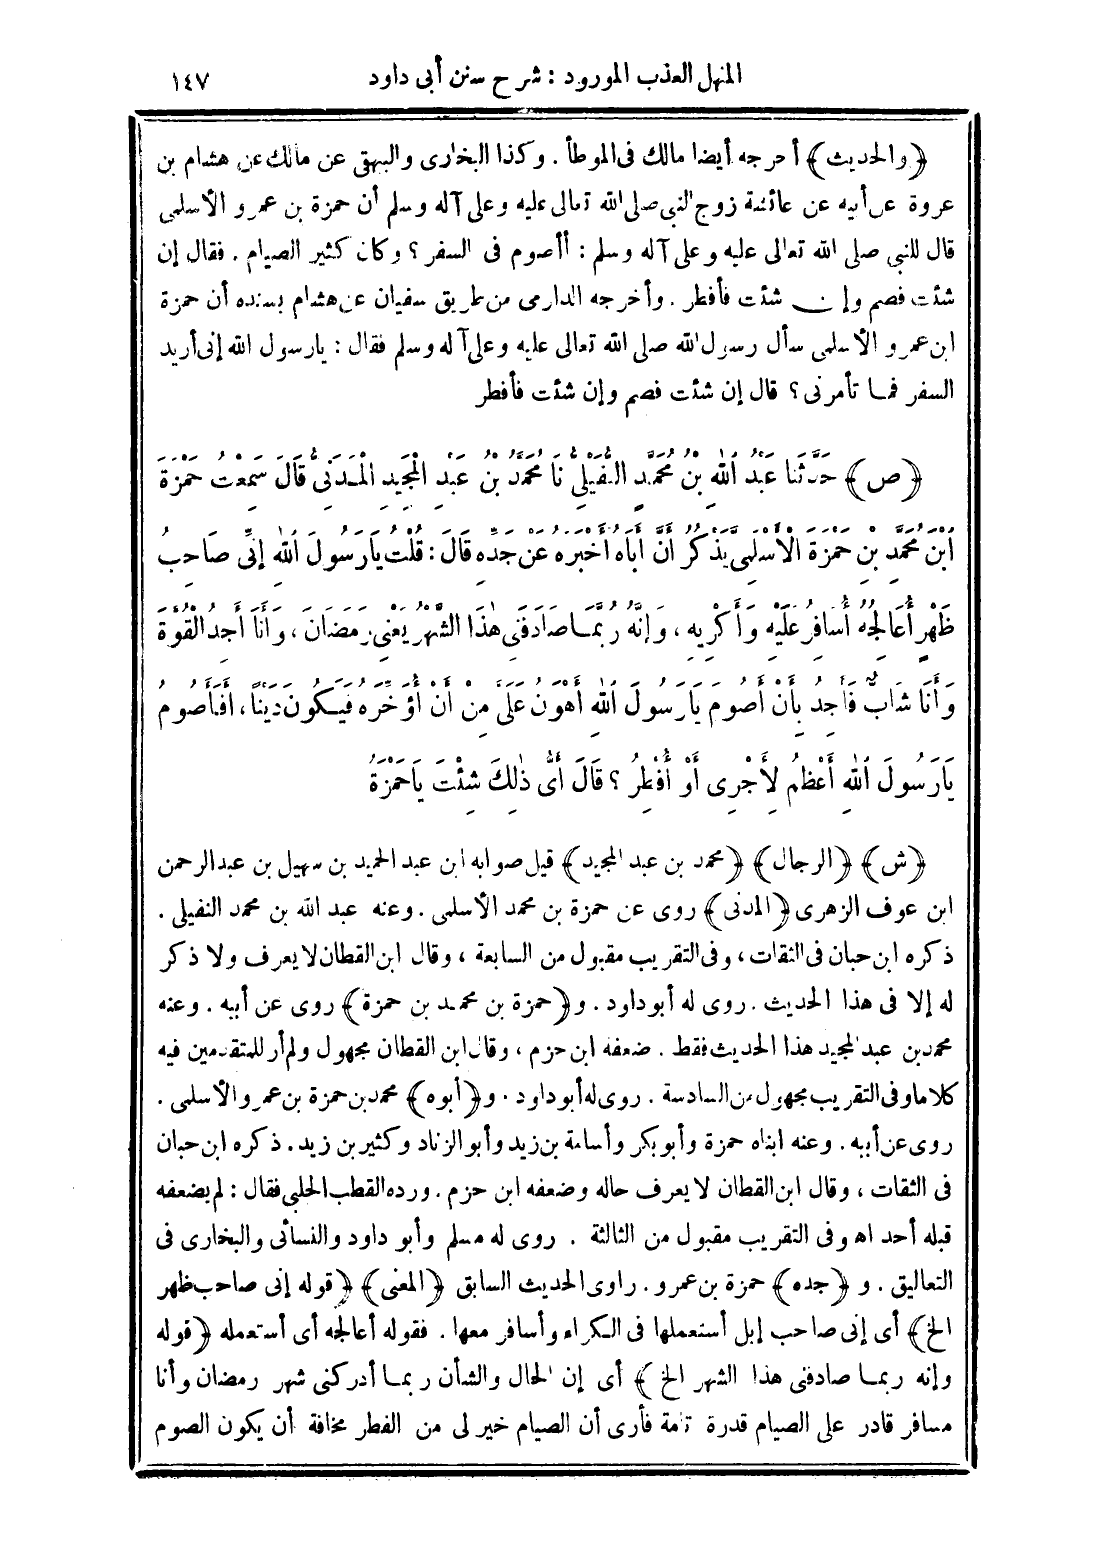 المنهل العذب المورود : شرح سنن أبى داود ١٤٧
﴿والحديث﴾ أخرجه أيضا مالك فى الموطأ . وكذا البخارى والبيهقى عن مالك عن هشام بن
عروة عن أبيه عن عائشة زوج النبى صلى الله تعالى عليه وعلى آله وسلم أن حمزة بن عمرو الأسلمى
قال للنبى صلى الله تعالى عليه وعلى آله وسلم : أأصوم فى السفر ؟ وكان كثير الصيام . فقال إن
شئت فصم وإن شئت فأفطر . وأخرجه الدارمى من طريق سفيان عن هشام بسنده أن حمزة
ابن عمرو الأسلمى سأل رسول الله صلى الله تعالى عليه وعلى آله وسلم فقال : يارسول الله إنى أريد
السفر فما تأمرنى ؟ قال إن شئت فصم وإن شئت فأفطر
﴿ص﴾ حَدَّثَنَا عَبْدُ اللهِ بْنُ مُحَمَّدٍ النُّفَيْلِىُّ نَا مُحَمَّدُ بْنُ عَبْدِ الْمَجِيدِ الْمَدَنِىُّ قَالَ سَمِعْتُ حَمْزَةَ
ابْنَ مُحَمَّدِ بْنِ حَمْزَةَ الْأَسْلَمِىَّ يَذْكُرُ أَنَّ أَبَاهُ أَخْبَرَهُ عَنْ جَدِّهِ قَالَ : قُلْتُ يَارَسُولَ اللهِ إِنِّى صَاحِبُ
ظَهْرٍ أُعَالِجُهُ أُسَافِرُ عَلَيْهِ وَأَكْرِيهِ ، وَإِنَّهُ رُبَّمَا صَادَفَنِى هٰذَا الشَّهْرُ يَعْنِى رَمَضَانَ ، وَأَنَا أَجِدُ الْقُوَّةَ
وَأَنَا شَابٌّ فَأَجِدُ بِأَنْ أَصُومَ يَارَسُولَ اللهِ أَهْوَنُ عَلَىَّ مِنْ أَنْ أُؤَخِّرَهُ فَيَكُونَ دَيْنًا ، أَفَأَصُومُ
يَارَسُولَ اللهِ أَعْظَمُ لِأَجْرِى أَوْ أُفْطِرُ ؟ قَالَ أَىُّ ذٰلِكَ شِئْتَ يَاحَمْزَةُ
﴿ش﴾ ﴿الرجال﴾ ﴿محمد بن عبد المجيد﴾ قيل صوابه ابن عبد الحميد بن سهيل بن عبدالرحمن
ابن عوف الزهرى ﴿المدنى﴾ روى عن حمزة بن محمد الأسلمى . وعنه عبد الله بن محمد النفيلى .
ذكره ابن حبان فى الثقات ، وفى التقريب مقبول من السابعة ، وقال ابن القطان لا يعرف ولا ذكر
له إلا فى هذا الحديث . روى له أبوداود . و﴿حمزة بن محمد بن حمزة﴾ روى عن أبيه . وعنه
محمد بن عبد المجيد هذا الحديث فقط . ضعفه ابن حزم ، وقال ابن القطان مجهول ولم أر للمتقدمين فيه
كلاما وفى التقريب مجهول من السادسة . روى له أبوداود . و﴿أبوه﴾ محمد بن حمزة بن عمرو الأسلمى .
روى عن أبيه . وعنه ابناه حمزة وأبوبكر وأسامة بن زيد وأبو الزناد وكثير بن زيد . ذكره ابن حبان
فى الثقات ، وقال ابن القطان لا يعرف حاله وضعفه ابن حزم . ورده القطب الحلبى فقال : لم يضعفه
قبله أحد اه وفى التقريب مقبول من الثالثة . روى له مسلم وأبو داود والنسائى والبخارى فى
التعاليق . و ﴿جده﴾ حمزة بن عمرو . راوى الحديث السابق ﴿المعنى﴾ ﴿قوله إنى صاحب ظهر
الخ﴾ أى إنى صاحب إبل أستعملها فى الكراء وأسافر معها . فقوله أعالجه أى أستعمله ﴿قوله
وإنه ربما صادفنى هذا الشهر الخ﴾ أى إن الحال والشأن ربما أدركنى شهر رمضان وأنا
مسافر قادر على الصيام قدرة تامة فأرى أن الصيام خير لى من الفطر مخافة أن يكون الصوم